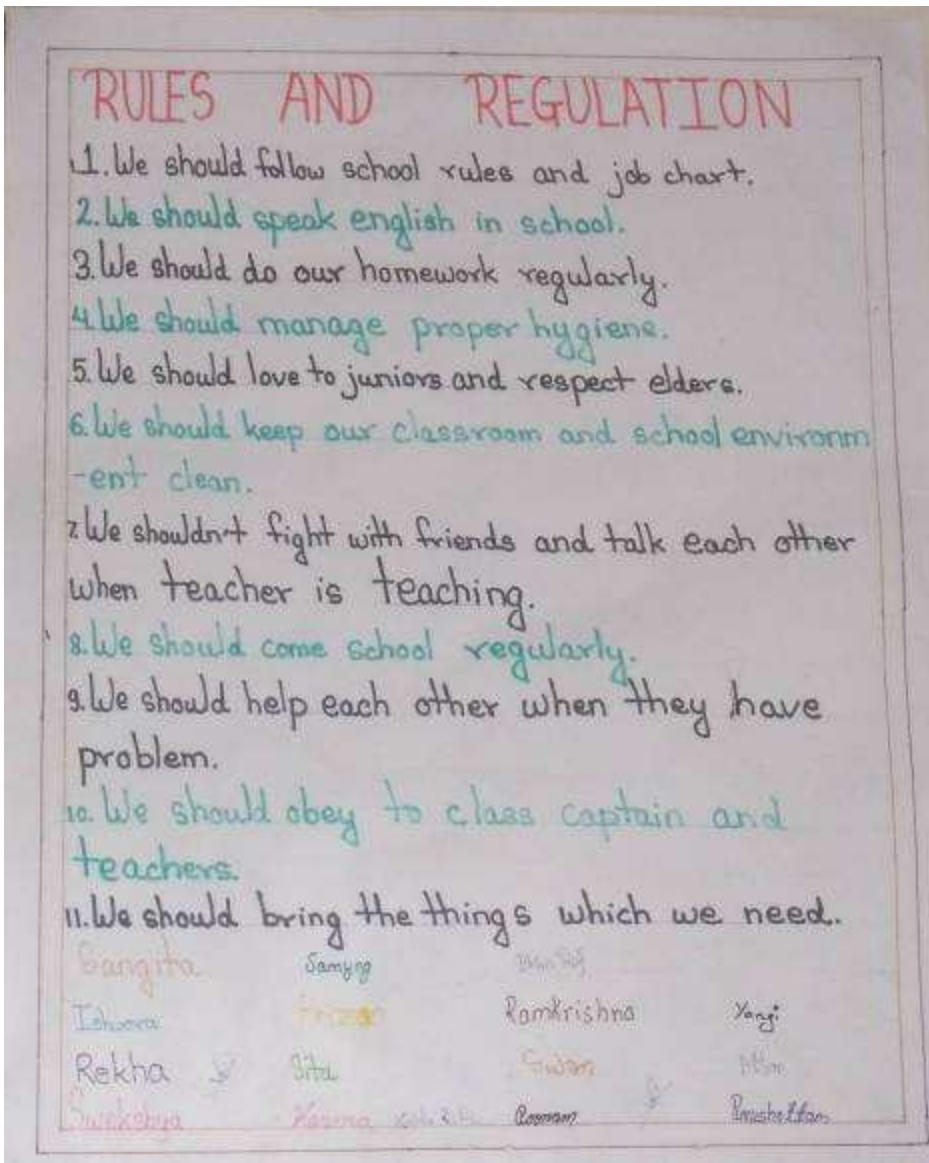 RULES AND REGULATION
1. We should follow school rules and job chart.
2. We should speak english in school.
3. We should do our homework regularly.
4. We should manage proper hygiene.
5. We should love to juniors and respect elders.
6. We should keep our classroom and school environm
-ent clean.
7. We shouldn't fight with friends and talk each other
when teacher is teaching.
8. We should come school regularly.
9. We should help each other when they have
problem.
10. We should obey to class captain and
teachers.
11. We should bring the things which we need.
Sangita Samyog
Ramkrishna Yangi
Rekha Sita
Swekshya Poonam